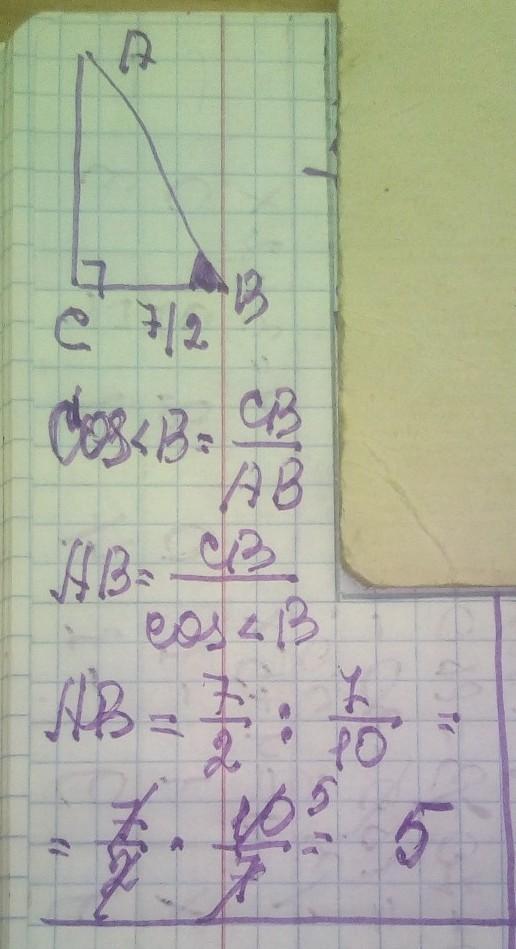 A
C 7/2 B
cos<B = CB/AB
AB = CB/cos<B
AB = 7/2 : 7/10 =
= 7/2 · 10/7 5 = 5